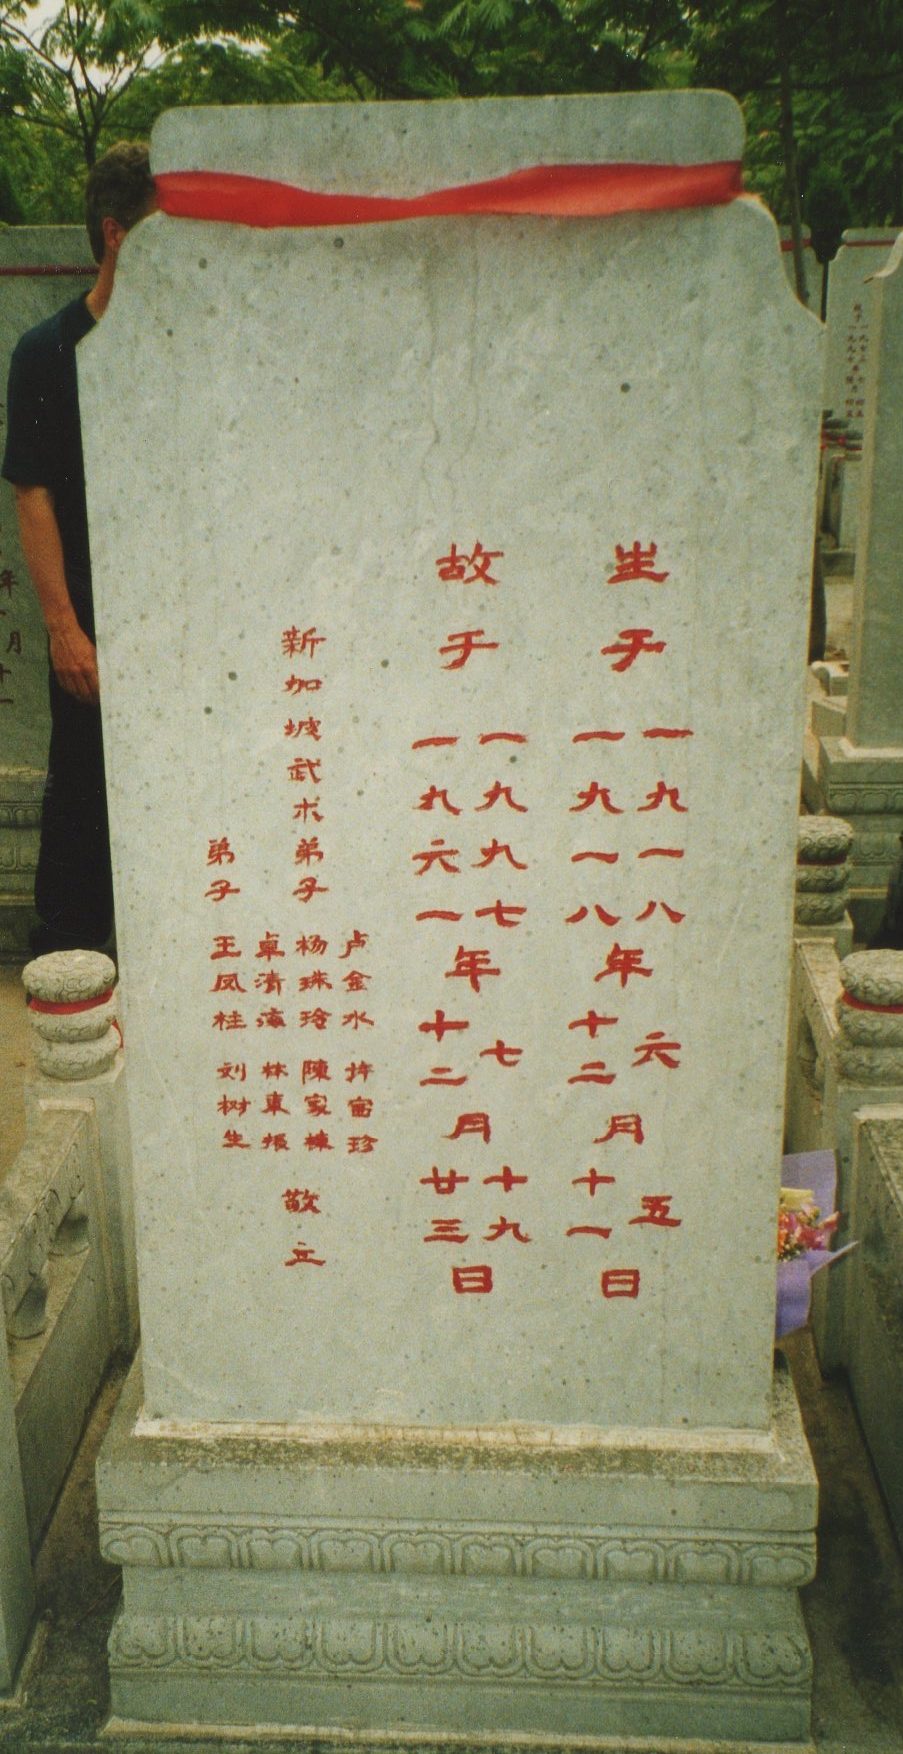 生于一九一八年六月五日
一九一八 十二 十一
故于一九九七年七月十九日
一九六一 十二 廿三
新加坡武术弟子
卢金水 珍
杨珠玲 陳家棟
卓清 林東振
弟子 王凤柱 刘树生
敬立